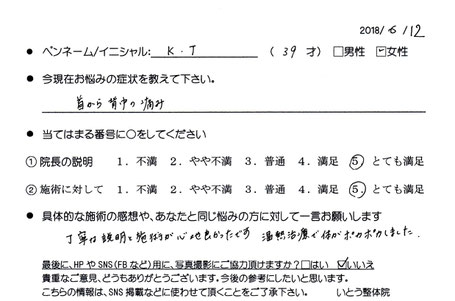 2018/6/12
● ペンネーム/イニシャル: K・T (39才) □男性 ☑女性
● 今現在お悩みの症状を教えて下さい。
首から背中の痛み
● 当てはまる番号に○をしてください
①院長の説明 1.不満 2.やや不満 3.普通 4.満足 ⑤.とても満足
②施術に対して 1.不満 2.やや不満 3.普通 4.満足 ⑤.とても満足
● 具体的な施術の感想や、あなたと同じ悩みの方に対して一言お願いします
丁寧な説明と施術が心地良かったです 温熱治療で体がポカポカしました.
最後に、HPやSNS(FBなど)用に、写真撮影にご協力頂けますか?□はい ☑いいえ
貴重なご意見、どうもありがとうございます。今後の参考にしたいと思います。
こちらの情報は、SNS掲載などに使わせて頂くことをご了承下さい。 いとう整体院